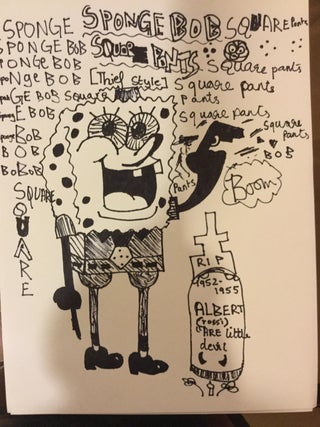 SPONGE SPONGE BOB SQUARE Pants
SPONGE BOB SQUARE PANTS
PONGE BOB Square pants
NGE BOB [Thief style] Square pants
GE BOB Square pants
E BOB Square pants
BOB Square pants
BOB BOB
BOBOB
Pants
SQUARE
SQUARE
Boom
RIP
1952-
1955
ALBERT
(rossi)
ARE little
devil